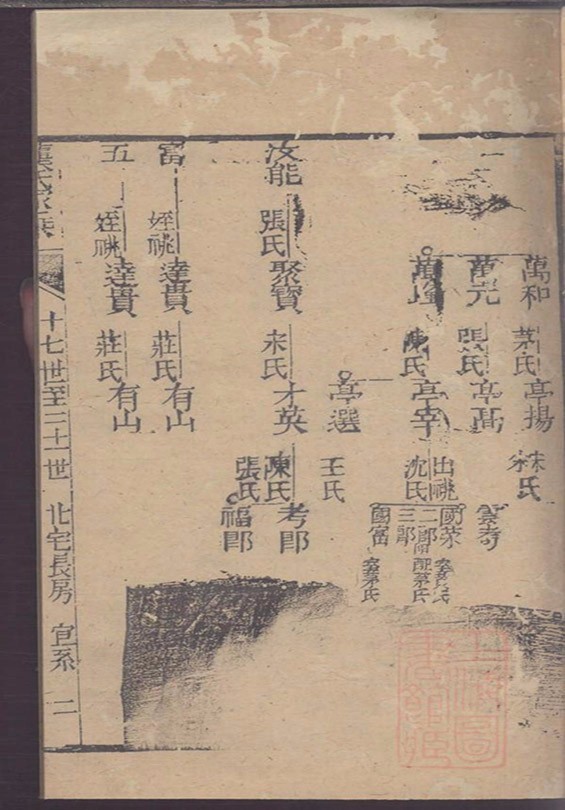 萬和
茅氏
亭揚
宋氏
萬元
張氏
亭高
陳氏
亭幸
出祧
沈氏
國富
三郎
二郎
亭選
王氏
汝能
張氏
聚寶
宋氏
才英
陳氏
張氏
考郎
福郎
富
姪祧
達貴
莊氏
有山
五
姪祧
達貴
莊氏
有山
十七世至二十一世 北宅長房 宣系 二